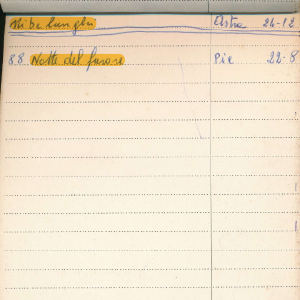 Nibelunghi Astra 24-12
88 Notte del furore Pia 22-8